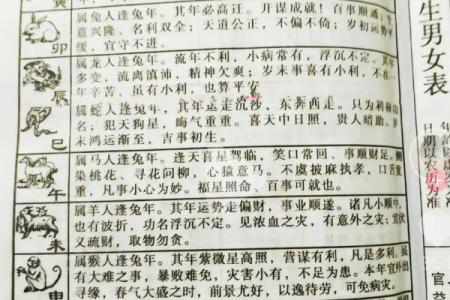 寅
卯
属兔人逢兔年。其年必高迁。开谋成就！百事顺通；生
意兴隆、名利双全；天道公正，不偏不倚；岁初运势平
缓，官守不进。
辰
属龙人逢兔年。流年不利，小病常有，浮沉不定。其年
多变，流离滇沛，精神欠爽；岁末事喜有小利，不在
年辛苦，虽有小利，也算平安
巳
属蛇人逢兔年，其年运走沉沙，东奔西走。只为利禄
名；犯天狗星，晦气重重。喜天中日照，贵人暗助。岁
末鸿运渐至，吉事初生。
午
属马人逢兔年。逢天喜星驾临，笑口常回、事顺财足。
染桃花、寻花问柳，心猿意马。不虞披麻执孝，口舌
重，凡事小心为妙。福星照命、百事可就也。
未
属羊人逢兔年。其年运势走偏财，事业顺遂。诸凡小顺中，
也有波折，功名浮沉不定。见浓血之灾，有意外之灾；
义疏财，取物勿贪。
申
属猴人逢兔年。其年紫微星高照，营谋有利，凡是多利，
有大难之事，暴败难免，灾害小有，不足为患。本年宜外出
寻缘，春气大盛之时，前景尤好，以逸待劳，可免病灾。
生男女表
年
日期以农历为准
官
益